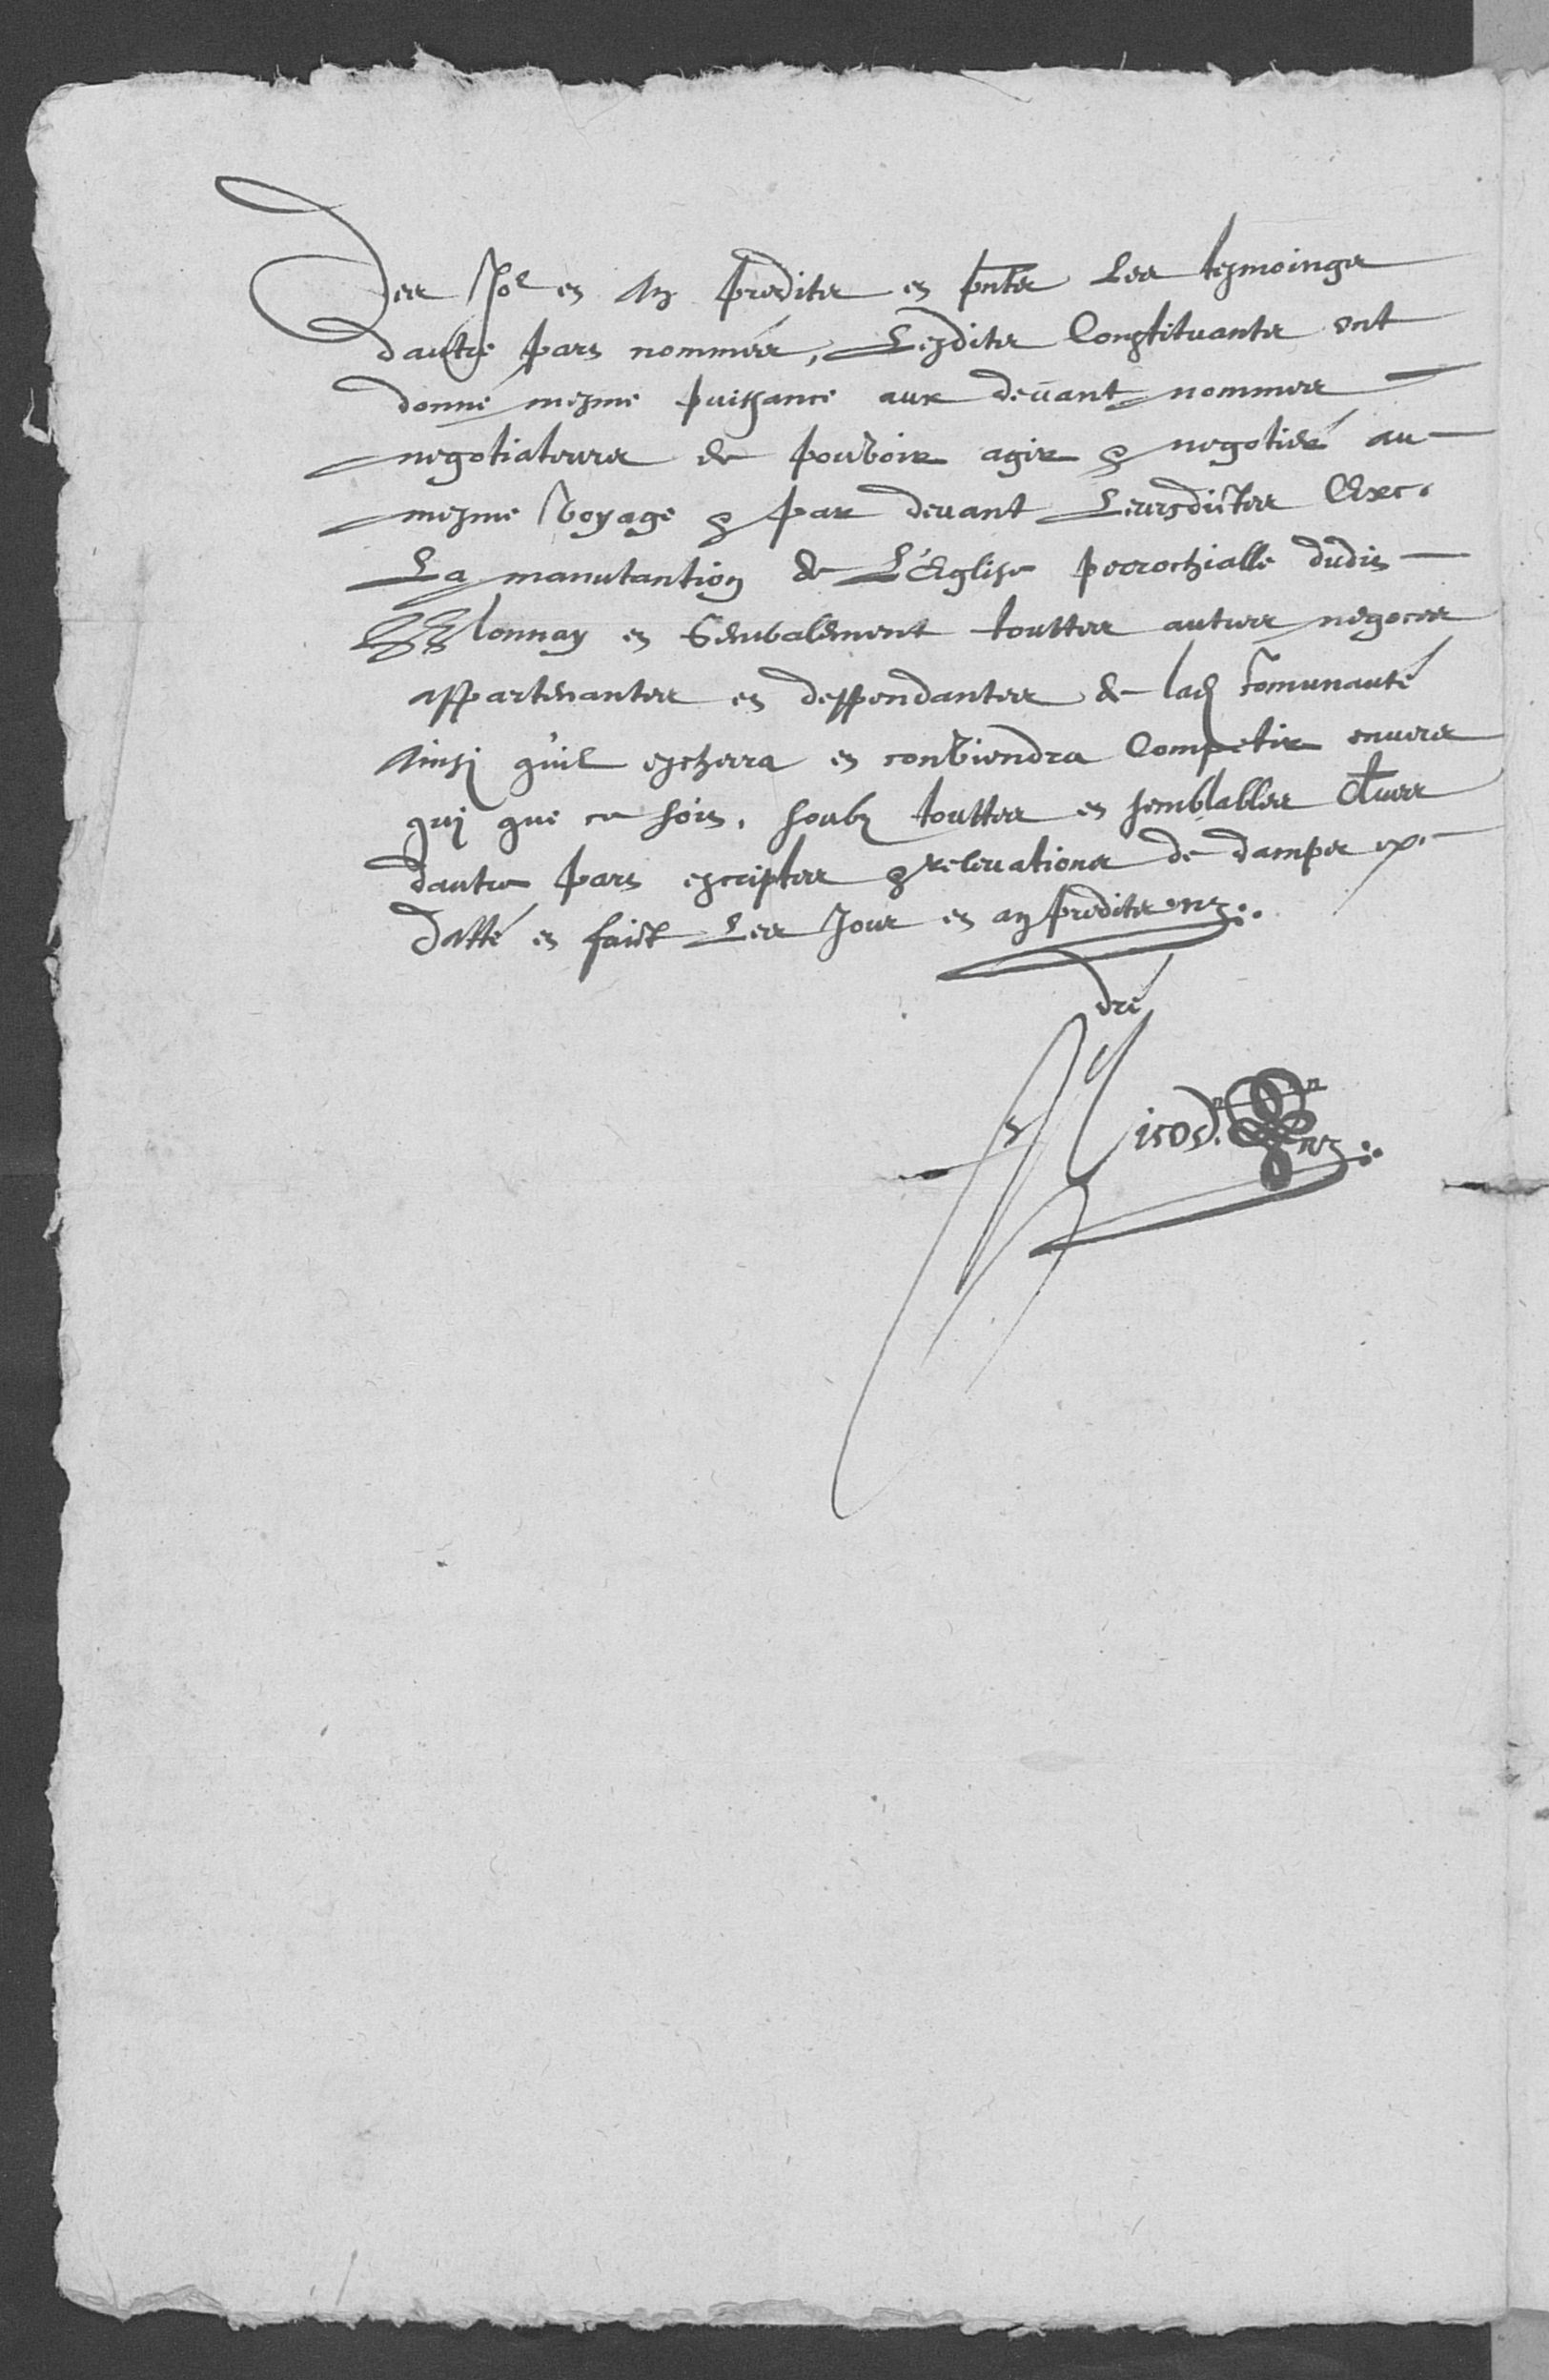 Des Jor et An predites et pntes Les tesmoinges
dautre part nommés, Lesdites Constituantes ont
donné mesme puissance aux devant nommes
negotiateures de pouvoir agir & negotier au
mesme voyage & par devant Leursdictes Exc.
La manutantion de L'Eglise perrochialle dudit
lonnay et Generalement touttes autres negoces
appartenantes et deppendantes de lad comunauté
Ainsi qu'il escherra et conviendra Competir envers
qui que ce soit, soubz touttes et semblables
dautre part escriptes & relevations de dampz
Datté et faict Les Jour et an predites